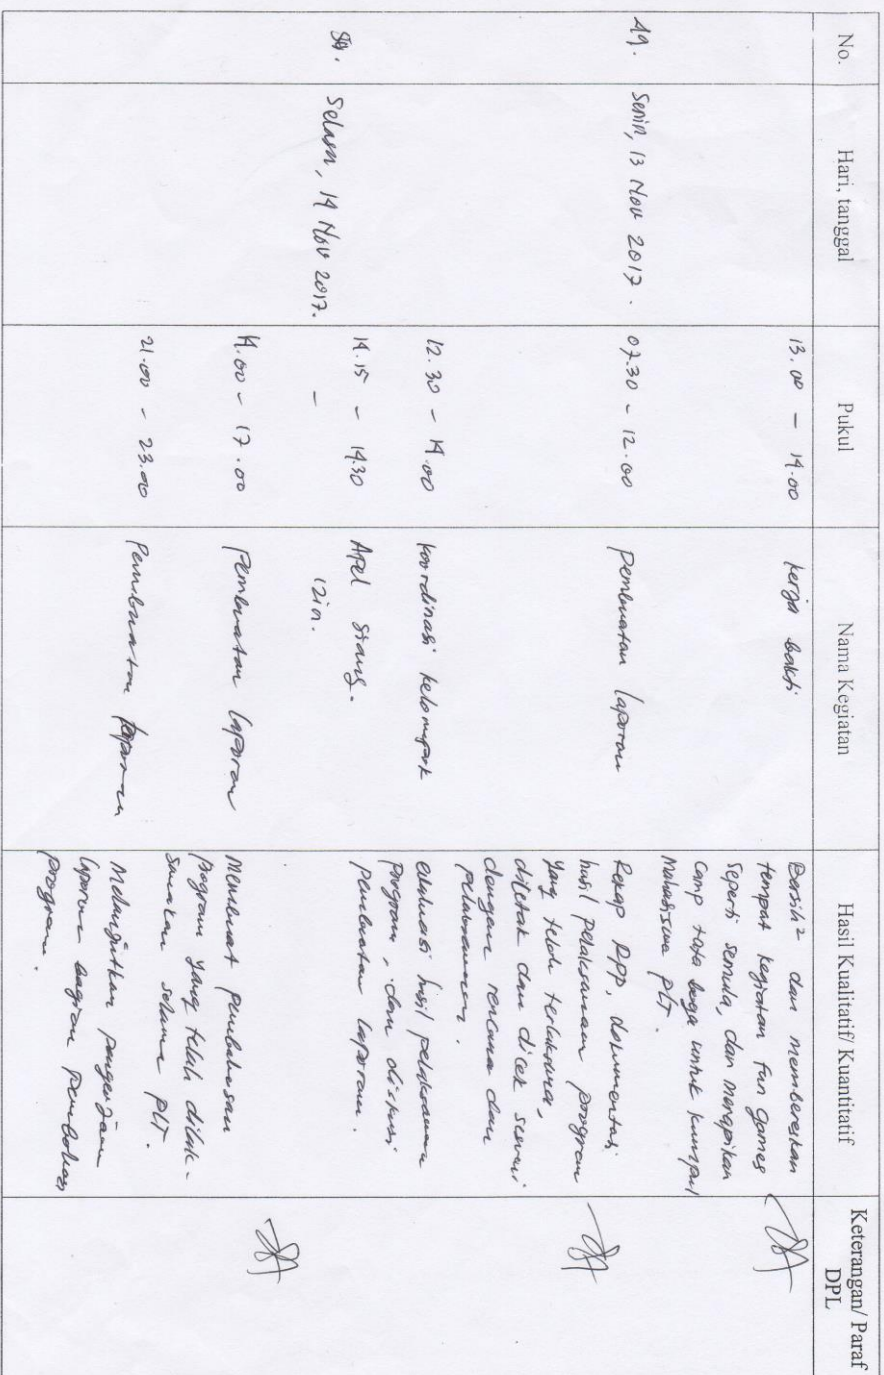 No. Hari, tanggal Pukul Nama Kegiatan Hasil Kualitatif/ Kuantitatif Keterangan/ Paraf DPL
13.00 - 14.00 kerja bakti Bersih² dan membereskan
tempat kegiatan fun games
seperti semula, dan merapikan
camp tata boga untuk kumpul
Mahasiswa PLT.
49. Senin, 13 Nov 2017. 07.30 - 12.00 pembuatan laporan Rekap RPP, dokumentasi
hasil pelaksanaan program
yang telah terlaksana,
dicetak dan dicek sesuai
dengan rencana dan
12.30 - 14.00 koordinasi kelompok evaluasi hasil pelaksanaan
program, dan diskusi
pembuatan laporan.
14.15 - 14.30 Apel Siang.
50. Selasa, 14 Nov 2017. - izin.
14.00 - 17.00 pembuatan laporan Membuat pembahasan
program yang telah dilak-
sanakan selama PLT.
21.00 - 23.00 Pembuatan laporan Melanjutkan pengerjaan
laporan bagian pembahasan
program.